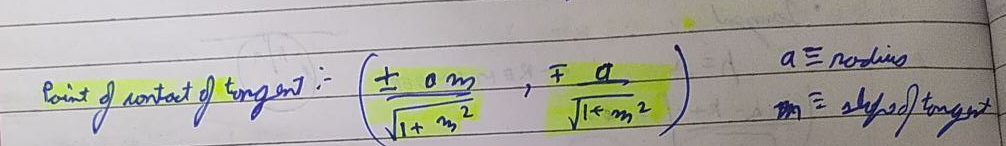 Point of contact of tangent :- ( ± am / √1+m² , ∓ a / √1+m² )
a ≡ radius
m ≡ slope of tangent